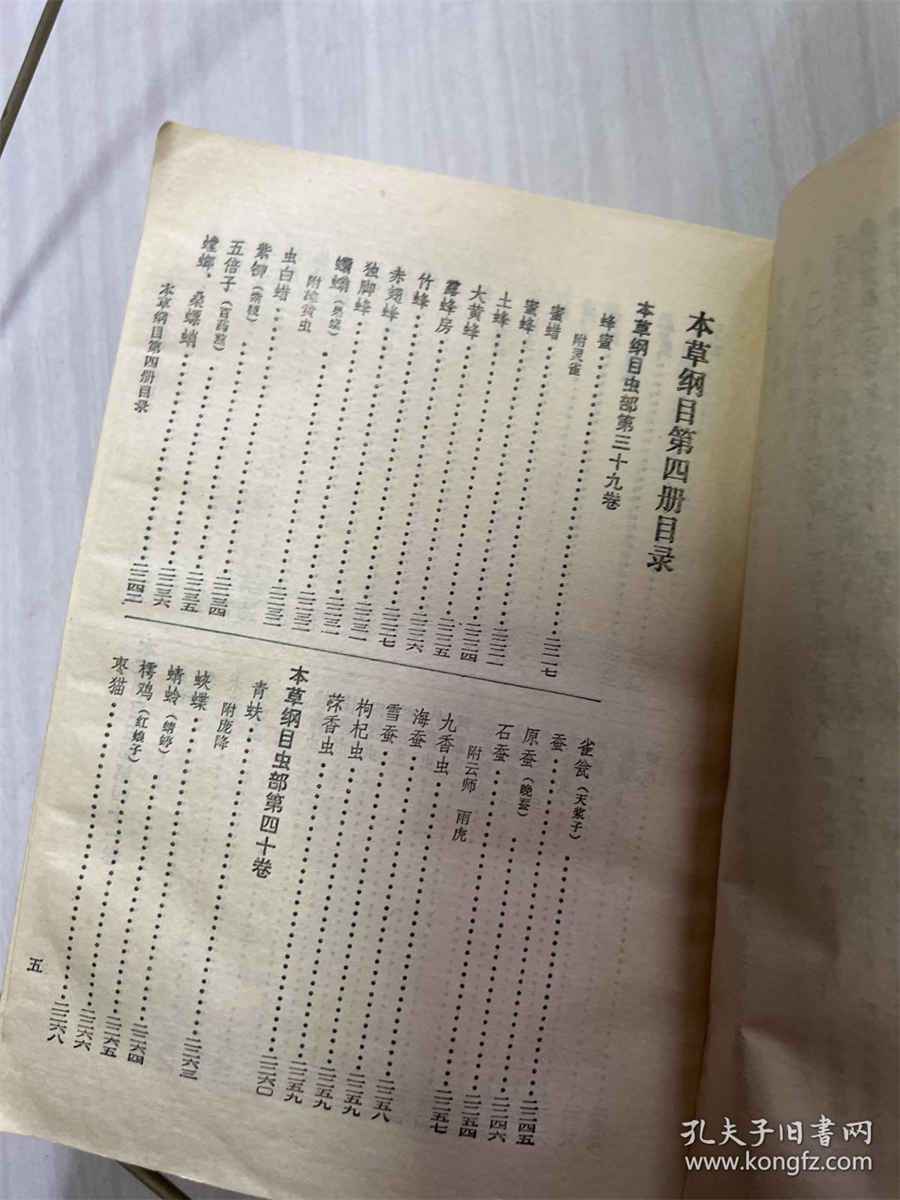 本草纲目第四册目录
本草纲目虫部第三十九卷
蜂蜜……二二一七
附灵雀
蜜蜡……二二二一
蜜蜂……二二二四
土蜂……二二二五
大黄蜂……二二二六
露蜂房……二二二七
竹蜂……二二三一
赤翅蜂……二二三一
独脚蜂……二二三二
蠮螉……二二三二
附雄黄虫
虫白蜡……二二三四
紫铆(紫梗)……二二三五
五倍子(百药煎)……二二三六
螳螂、桑螵蛸……二二四二
本草纲目第四册目录
雀瓮(天浆子)……二二四五
蚕……二二四六
原蚕(晚蚕)……二二五四
石蚕……二二五七
附云师 雨虎
九香虫……二二五八
海蚕……二二五九
雪蚕……二二五九
枸杞虫……二二五九
蘹香虫……二二六〇
本草纲目虫部第四十卷
青蚨……二二六三
附庞降
蛱蝶……二二六四
蜻蛉(蜻蜓)……二二六五
樗鸡(红娘子)……二二六六
枣猫……二二六八
五
孔夫子旧书网
www.kongfz.com